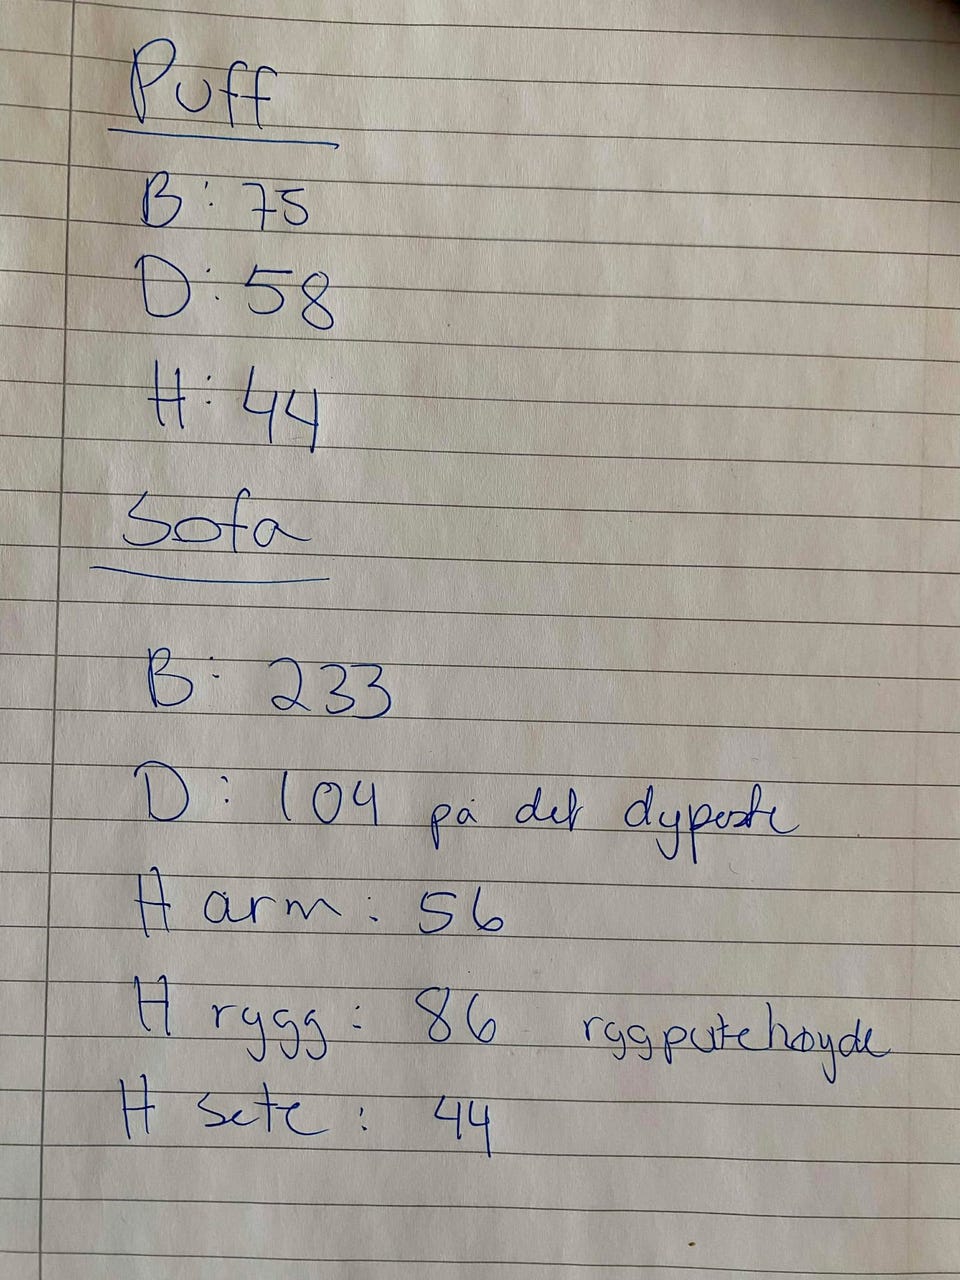 Puff
B: 75
D: 58
H: 44
Sofa
B: 233
D: 104 på det dypeste
H arm: 56
H rygg: 86 rggputehøyde
H sete: 44